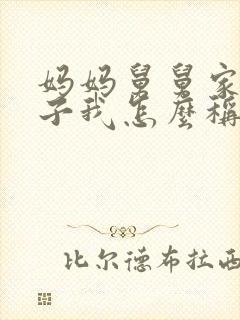 妈妈舅舅家
子我怎麼稱
比尔德布拉西